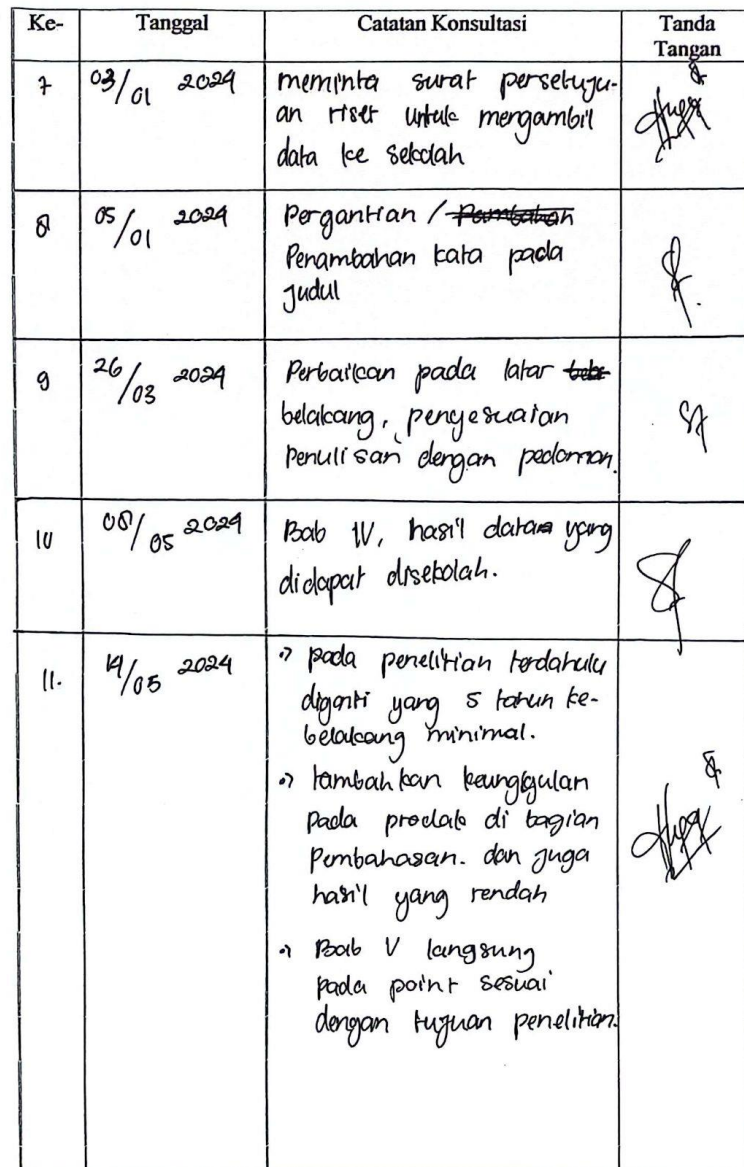 Ke- Tanggal Catatan Konsultasi Tanda Tangan
7 03/01 2024 meminta surat persetuju-
an riset untuk mengambil
data ke sekolah
8 05/01 2024 Pergantian /
Penambahan kata pada
judul
9 26/03 2024 Perbaikan pada latar
belakang, penyesuaian
Penulisan dengan pedoman.
10 08/05 2024 Bab IV, hasil data yang
didapat disekolah.
11. 14/05 2024 pada penelitian terdahulu
diganti yang 5 tahun ke-
belakang minimal.
tambahkan keunggulan
pada produk di bagian
Pembahasan. dan juga
hasil yang rendah
Bab V langsung
pada point sesuai
dengan tujuan penelitian.